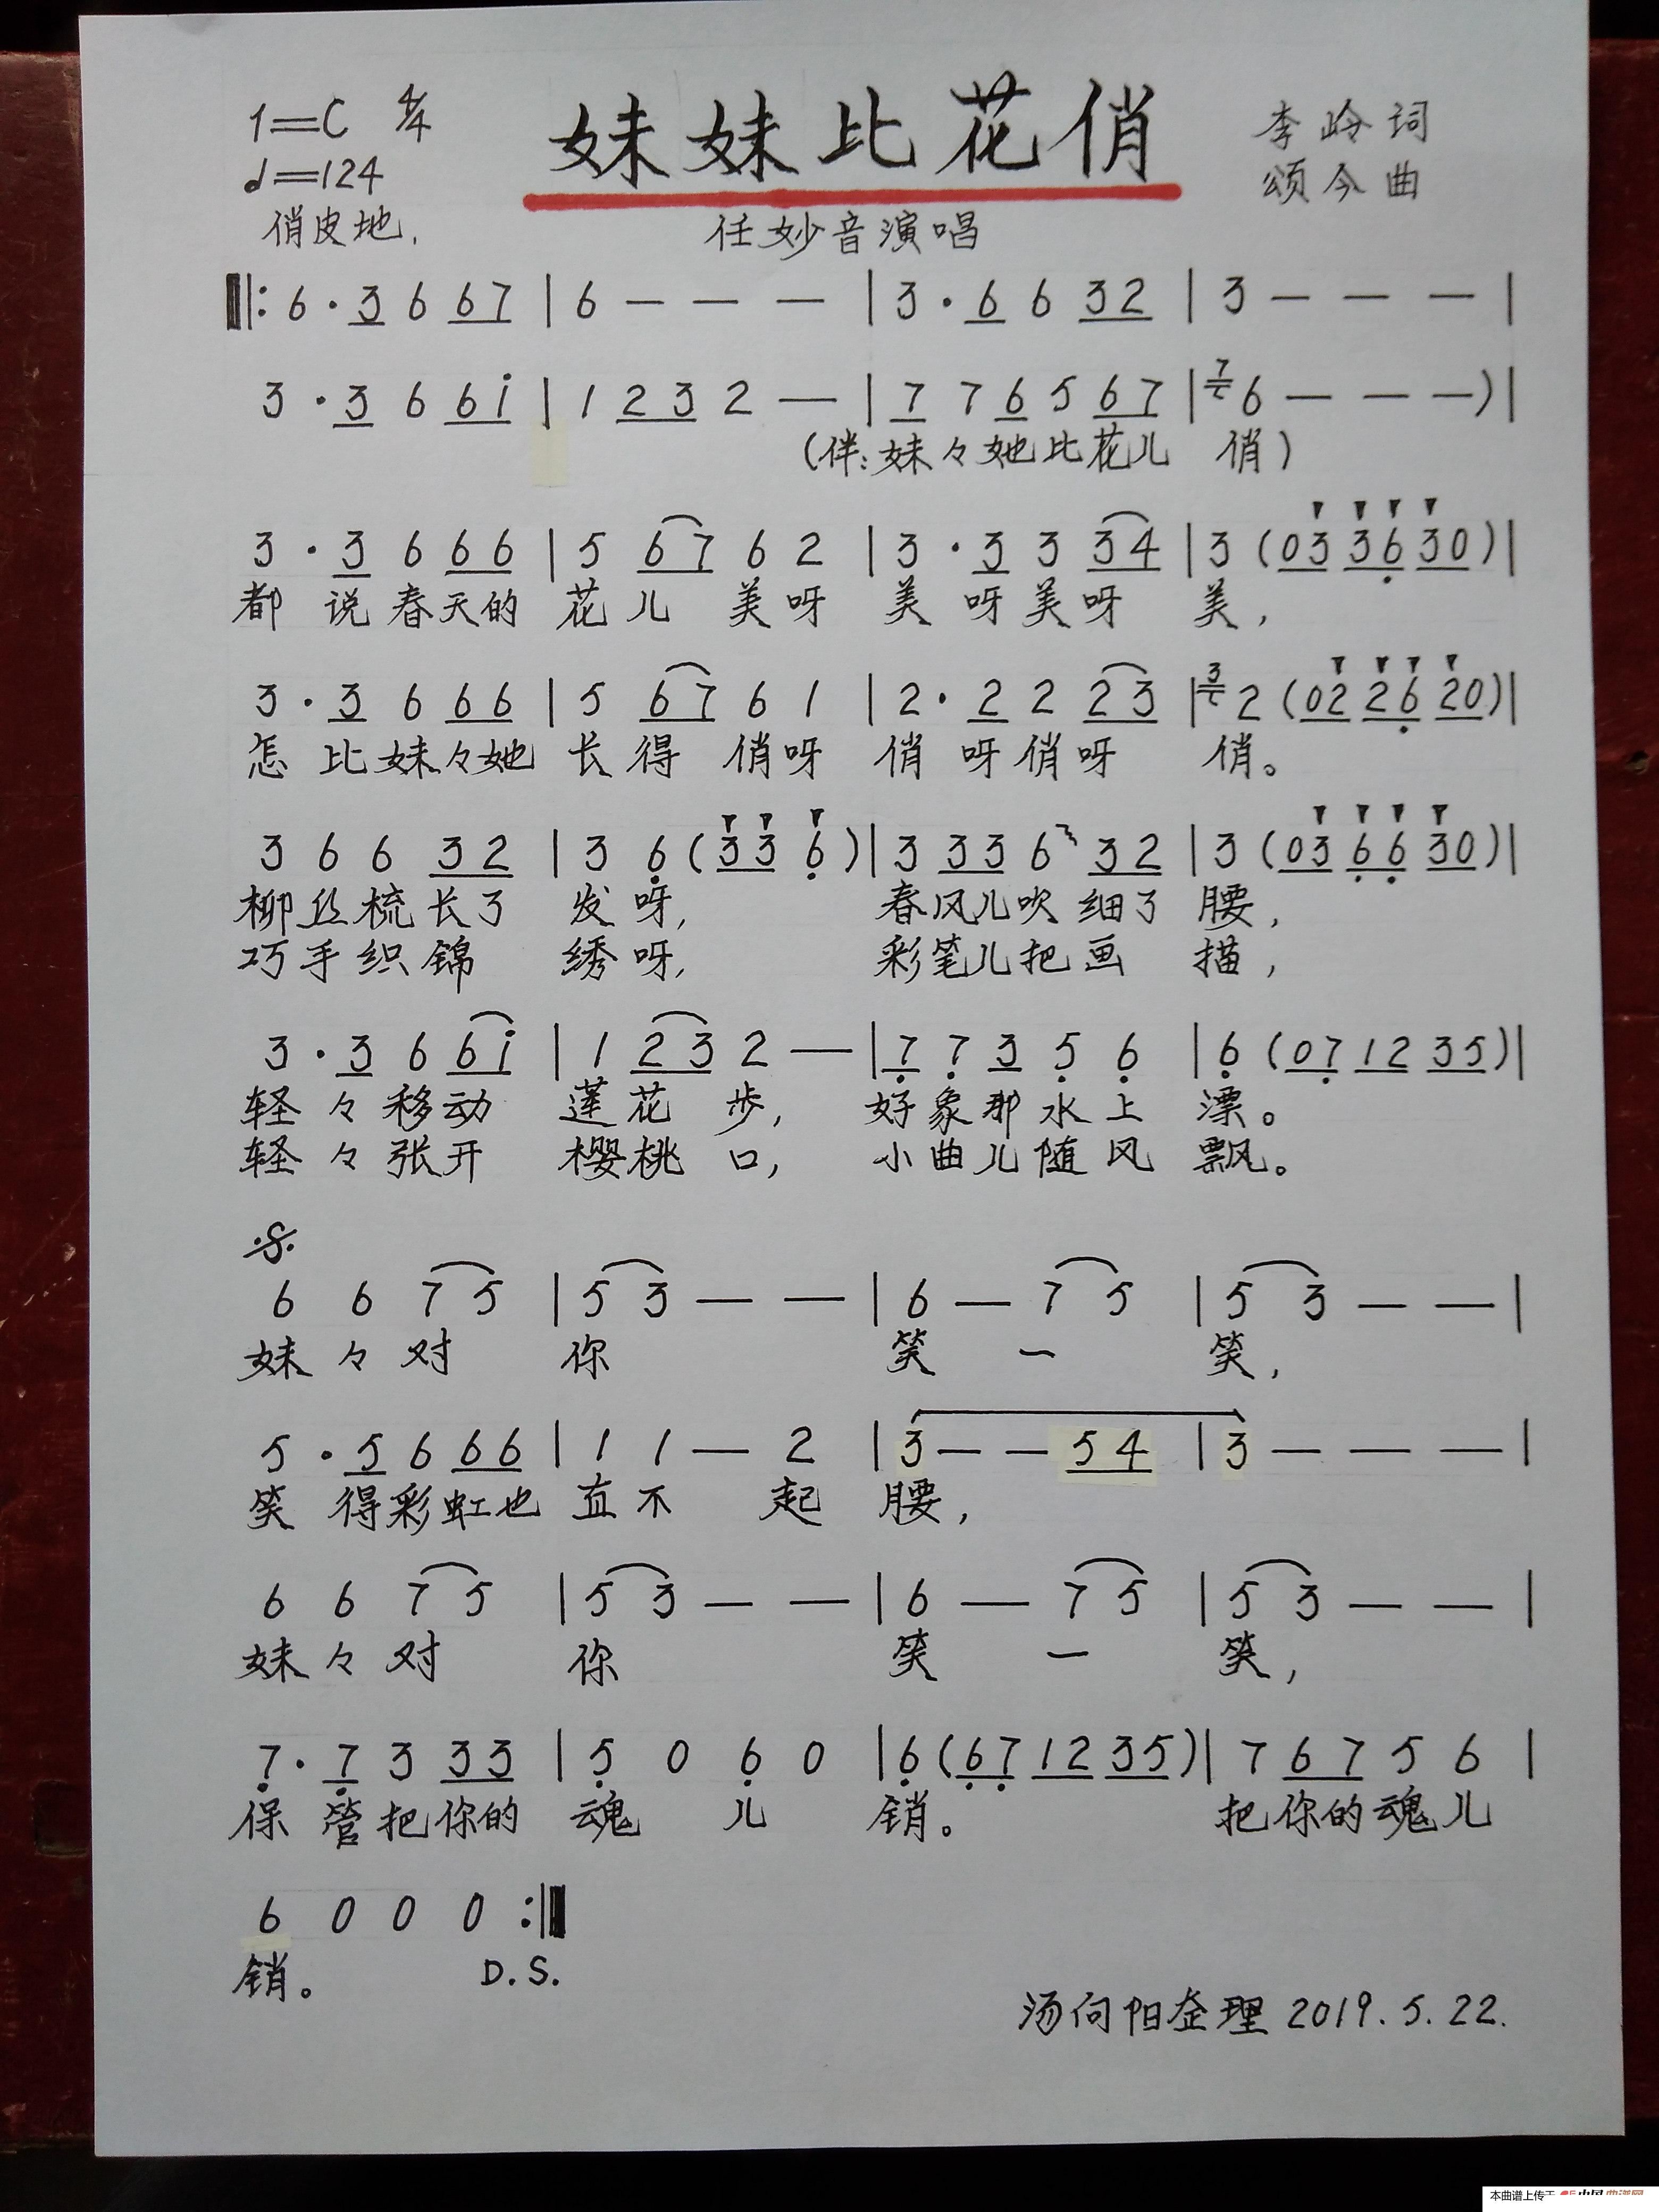 1=C 4/4
妹妹比花俏
李岭词
♩=124
颂今曲
俏皮地，
任妙音演唱
‖: 6 · 3 6 6 7 | 6 — — — | 3 · 6 6 3 2 | 3 — — — |
3 · 3 6 6 i | 1 2 3 2 — | 7 7 6 5 6 7 | 7 6 — — — ) |
（伴：妹々她比花儿 俏）
3 · 3 6 6 6 | 5 6 7 6 2 | 3 · 3 3 3 4 | 3 ( 0 3 3 6 3 0 ) |
都 说 春天的 花儿 美呀 美 呀美呀 美，
3 · 3 6 6 6 | 5 6 7 6 1 | 2 · 2 2 2 3 | 3 2 ( 0 2 2 6 2 0 ) |
怎 比妹々她 长得 俏呀 俏 呀俏呀 俏。
3 6 6 3 2 | 3 6 ( 3 3 6 ) | 3 3 3 6 3 2 | 3 ( 0 3 6 6 3 0 ) |
柳丝梳长了 发呀， 春风儿吹细了 腰，
巧手织锦 绣呀， 彩笔儿把画 描，
3 · 3 6 6 i | 1 2 3 2 — | 7 7 3 5 6 | 6 ( 0 7 1 2 3 5 ) |
轻々移动 莲花 步， 好象那水上 漂。
轻々张开 樱桃 口， 小曲儿随风 飘。
𝄋
6 6 7 5 | 5 3 — — | 6 — 7 5 | 5 3 — — |
妹々对 你 笑 一 笑，
5 · 5 6 6 6 | 1 1 — 2 | 3 — — 5 4 | 3 — — — |
笑 得彩虹也 直不 起 腰，
6 6 7 5 | 5 3 — — | 6 — 7 5 | 5 3 — — |
妹々对 你 笑 一 笑，
7 · 7 3 3 3 | 5 0 6 0 | 6 ( 6 7 1 2 3 5 ) | 7 6 7 5 6 |
保 管把你的 魂 儿 销。 把你的魂儿
6 0 0 0 :‖
销。 D.S.
汤向阳整理 2019.5.22.
本曲谱上传于